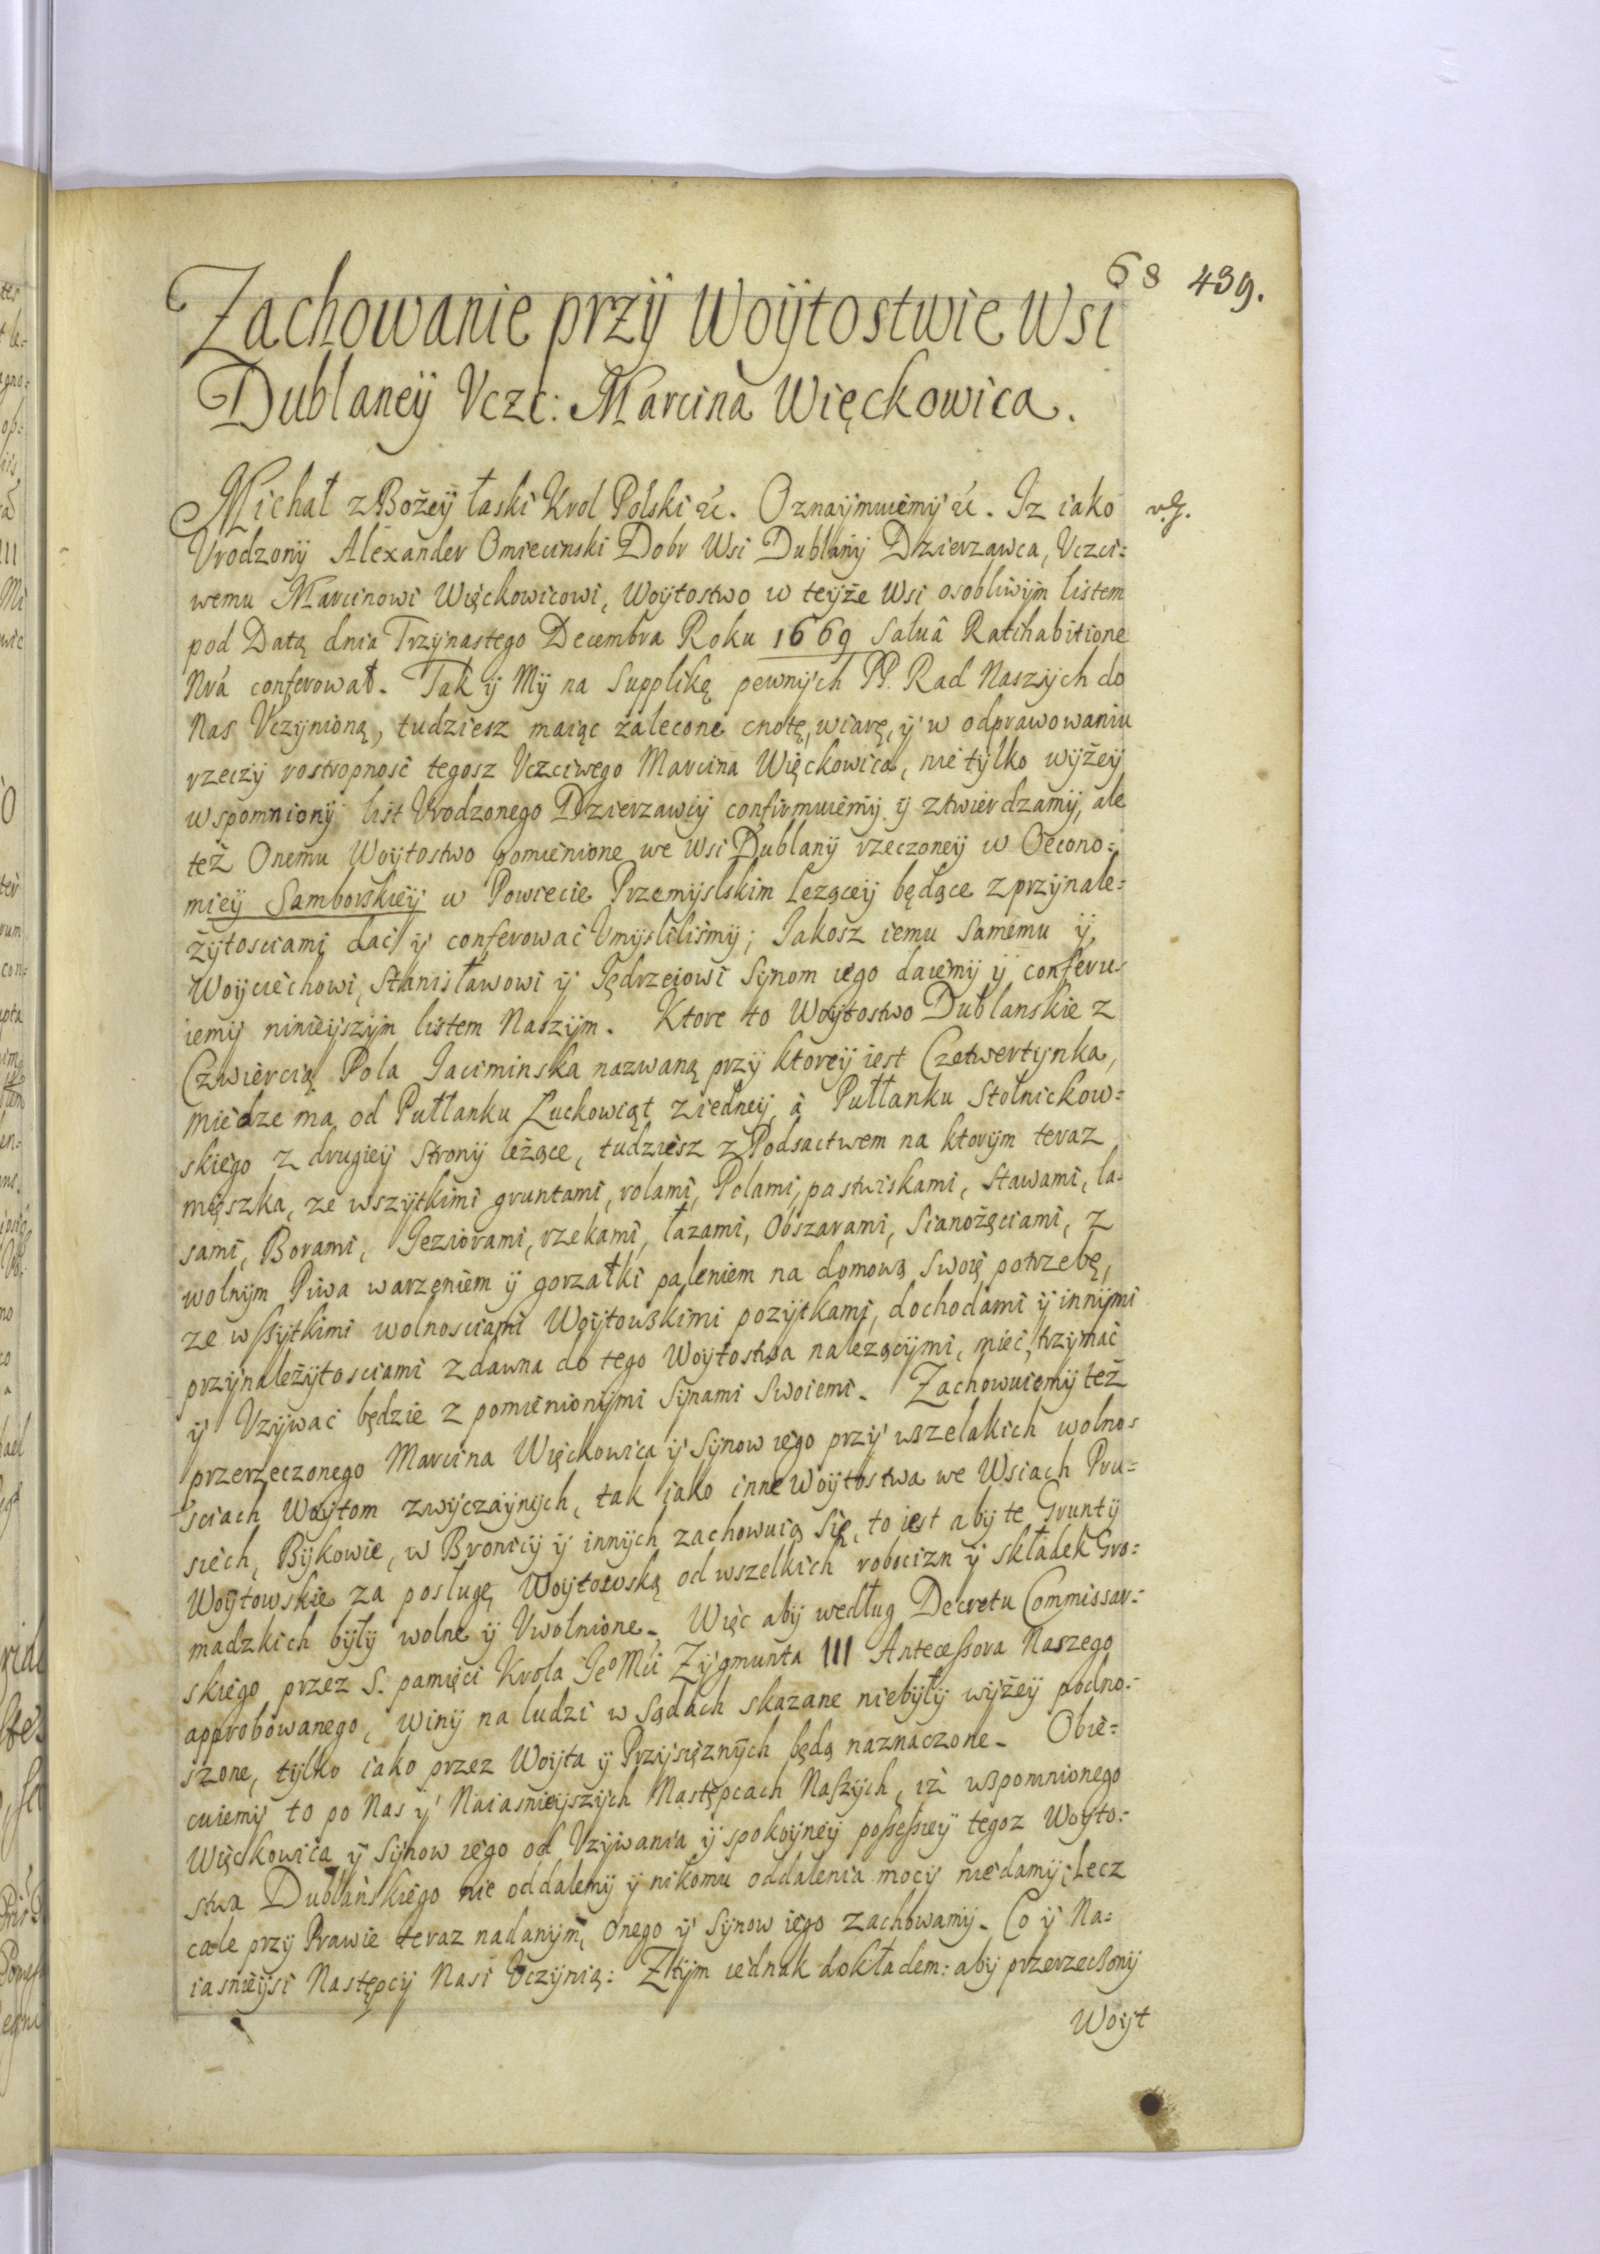 68 439.
Zachowanie przÿ Woÿtostwie Wsi
Dublaneÿ Vczc: Marcina Więckowica.
Michał z Bożeÿ łaski Krol Polski &c. Oznaÿmuiemÿ &c. Iz iako
Vrodzonÿ Alexander Omiecinski Dobr Wsi Dublanÿ Dzierzawca, Vczci:
wemu Marcinowi Więckowicowi, Woÿtostwo w teÿże Wsi osobliwÿm listem
pod Datą dnia Trzÿnastego Decembra Roku 1669 Saluâ Ratihabitione
Nrá conferował. Tak ÿ Mÿ na Supplikę pewnÿch PP. Rad Naszÿch do
Nas Vczÿnioną, tudziesz maiąc zalecone cnotę, wiarę, ÿ w odprawowaniu
rzeczÿ rostropnosć tegosz Vczciwego Marcina Więckowica, nie tÿlko wÿżeÿ
wspomnionÿ list Vrodzonego Dzierzawcÿ confirmuiemÿ ÿ ztwierdzamÿ, ale
też Onemu Woÿtostwo pomienione we Wsi Dublanÿ rzeczoneÿ w Oecono:
mieÿ Samborskieÿ w Powiecie Przemÿslskim lezące​ÿ będące z przÿnale:
żÿtosciami dać ÿ conferować Vmÿslilismÿ; Iakosz iemu Samemu ÿ
Woÿciechowi, Stanisławowi ÿ Iędrzeiowi Sÿnom iego daiemÿ ÿ conferu:
iemÿ ninieÿszÿm listem Naszÿm. Ktore to Woÿtostwo Dublanskie z
Czwiercią Pola Iaciminska nazwaną przÿ ktoreÿ iest Czetwertÿnka,
miedze ma od Pułłanku Luckowiąt z iedneÿ à Pułłanku Stolnickow:
skiego z drugieÿ Stronÿ leżące, tudziesz z Podsactwem na ktorÿm teraz
mięszka, ze wszÿtkimi gruntami, rolami, Polami, pastwiskami, Stawami, la:
sami, Borami, Geziorami, rzekami, łazami, Obszarami, Sianożęciami, z
wolnÿm Piwa warzeniem ÿ gorzałki paleniem na domową Swoię potrzebę,
ze wszÿtkimi wolnosciami Woÿtowskimi pozÿtkami, dochodami ÿ innÿmi
przÿnależÿtosciami zdawna do tego Woÿtostwa nalezącÿmi, mieć, trzÿmać
ÿ Vzÿwać będzie z pomienionÿmi Sÿnami Swoiemi. Zachowuiemÿ też
przerzeczonego Marcina Więckowica ÿ Sÿnow iego przÿ wszelakich wolno:
sciach Woÿtom zwÿczaÿnÿch, tak iako inne Woÿtostwa we Wsiach Pru:
siech, Bÿkowie, w Bronicÿ ÿ innÿch zachowuią Się, to iest abÿ te Gruntÿ
Woÿtowskie za poslugę Woÿtowską od wszelkich robocizn ÿ składek Gro:
madzkich bÿłÿ wolne ÿ Vwolnione. Więc abÿ według Decretu Commissar:
skiego przez S. pamięci Krola Geº Mći Zÿgmunta III Antecessora Naszego
approbowanego, winÿ na ludzi w Sądach skazane niebÿłÿ wÿżeÿ podno:
szone, tÿlko iako przez Woÿta ÿ Przÿsięznÿch będą naznaczone. Obie:
cuiemÿ to po Nas ÿ Naiasnieÿszÿch Następcach Naszÿch, iż wspomnionego
Więckowica ÿ Sÿnow iego od Vzÿwania ÿ spokoÿneÿ possessieÿ tegoz Woÿto:
stwa Dublańskiego nie oddalemÿ ÿ nikomu oddalenia mocÿ niedamÿ; Lecz
cale przÿ Prawie teraz nadanÿm, Onego ÿ Sÿnow iego zachowamÿ. Co ÿ Na:
iasnieÿsi Następcÿ Nasi Vczÿnią: Z tÿm iednak dokładem: abÿ przerzeczonÿ
Woÿt